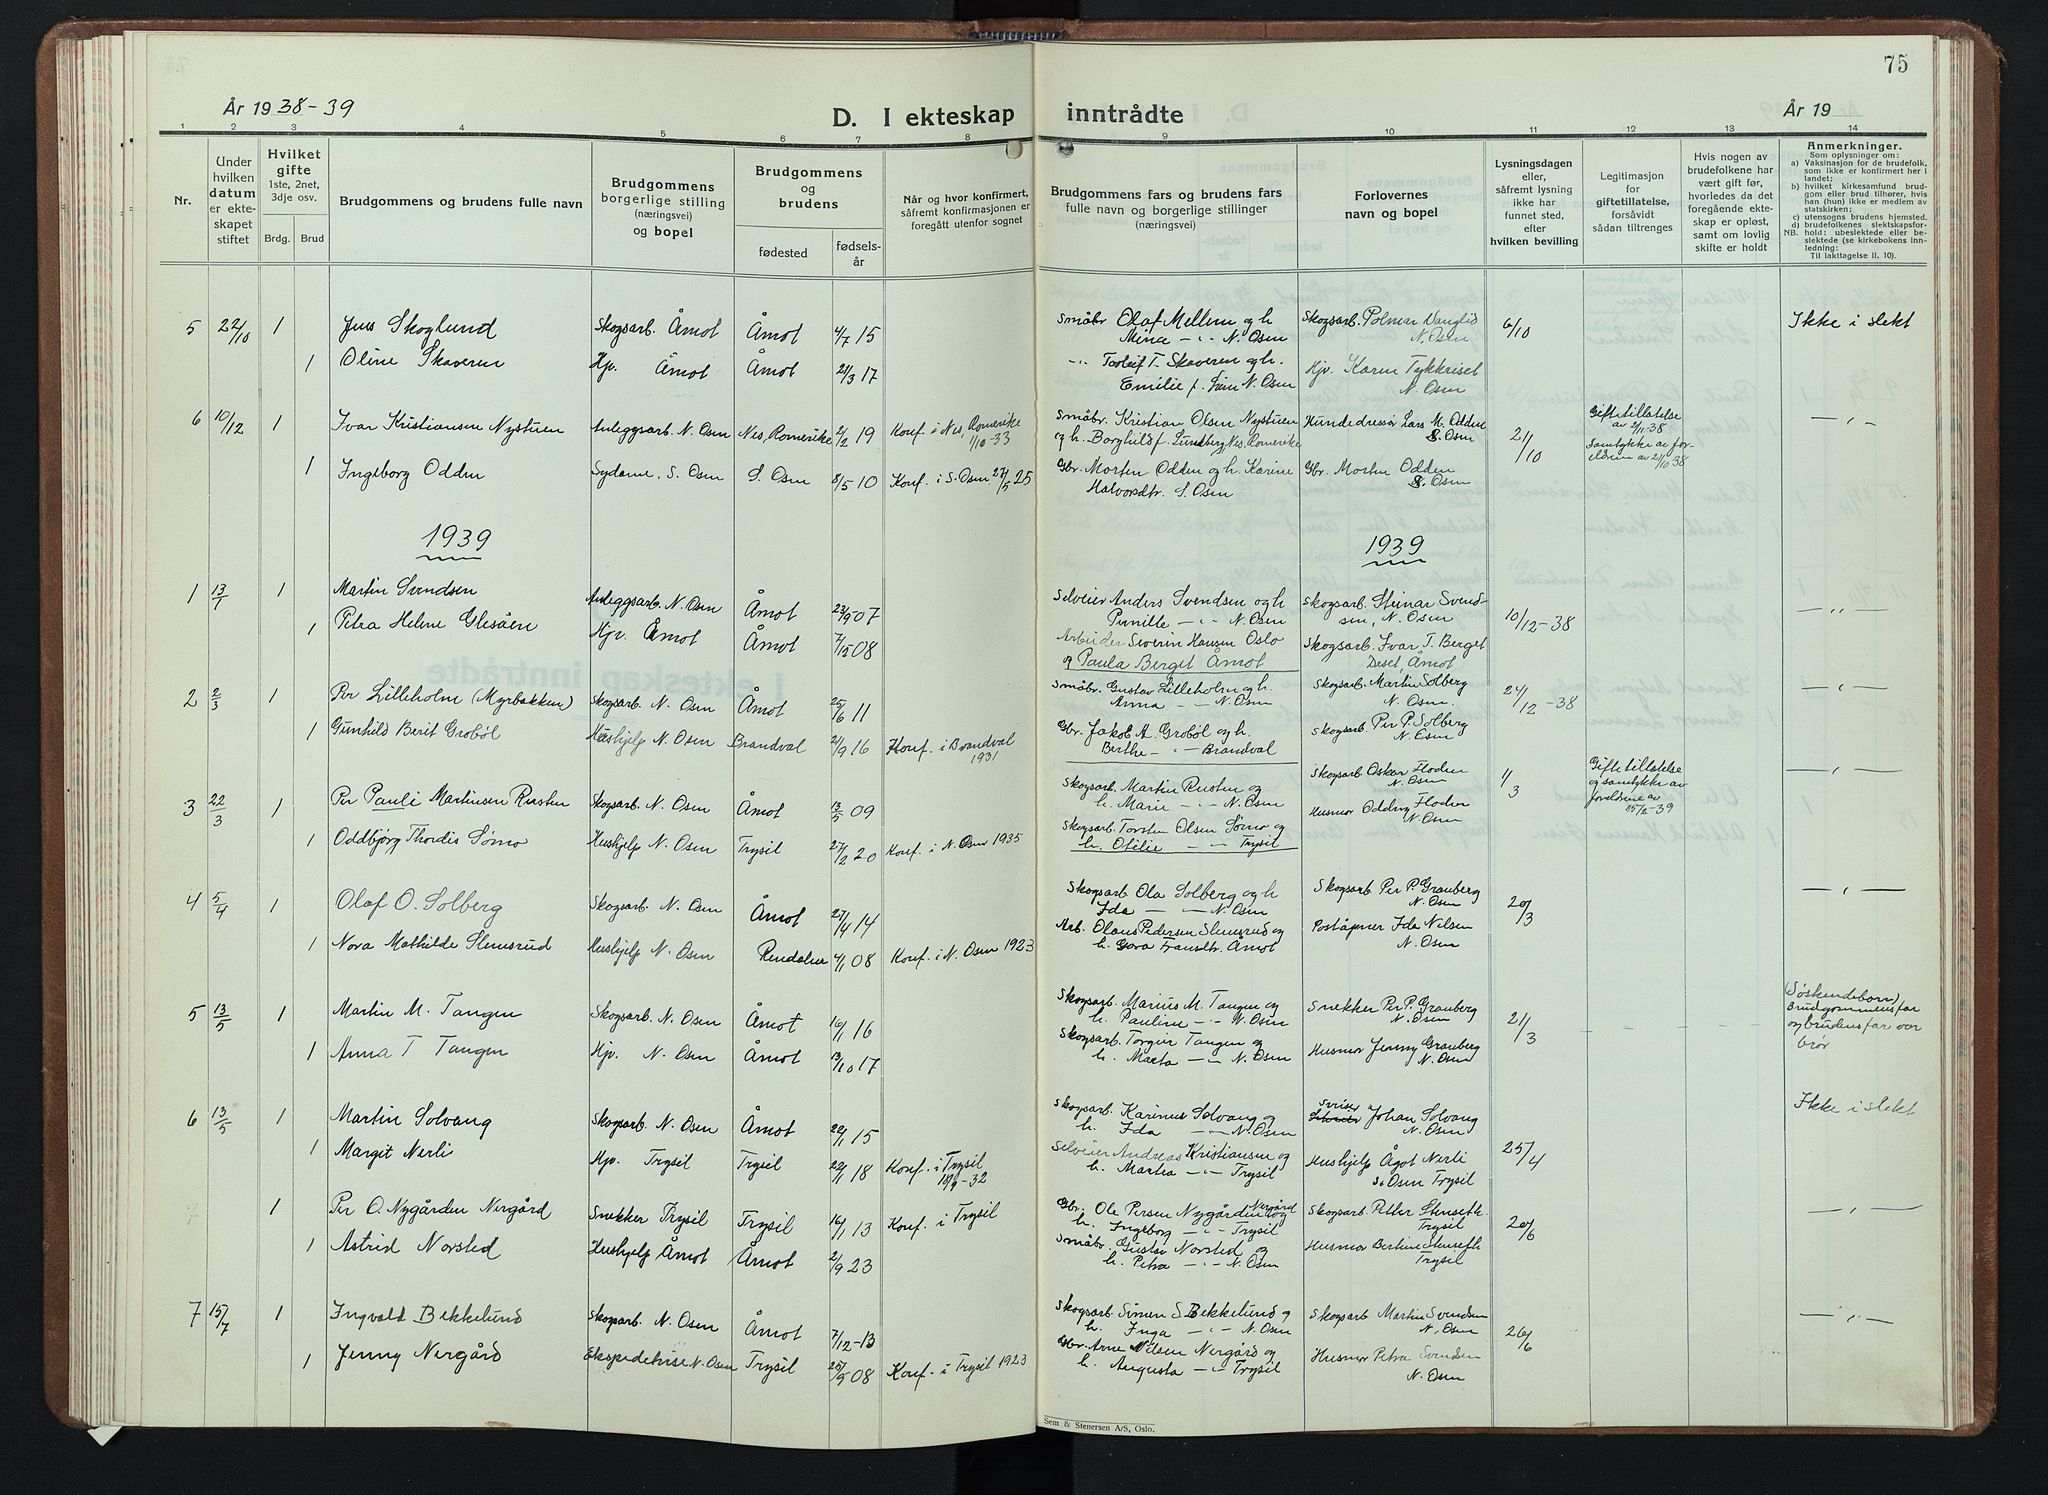 75
År 1938-39
D. I ekteskap inntrådte
År 19
1 2 3 4 5 6 7 8 9 10 11 12 13 14
Nr.
Under hvilken datum er ekteskapet stiftet
Hvilket gifte
1ste, 2net, 3dje osv.
Brdg. Brud
Brudgommens og brudens fulle navn
Brudgommens borgerlige stilling (næringsvei) og bopel
Brudgommens og brudens
fødested
fødsels-år
Når og hvor konfirmert, såfremt konfirmasjonen er foregått utenfor sognet
Brudgommens fars og brudens fars
fulle navn og borgerlige stillinger
(næringsvei)
Forlovernes
navn og bopel
Lysningsdagen eller, såfremt lysning ikke har funnet sted, efter hvilken bevilling
Legitimasjon for giftetillatelse, forsåvidt sådan tiltrenges
Hvis nogen av brudefolkene har vært gift før, hvorledes da det foregående ekteskap er opløst, samt om lovlig skifte er holdt
Anmerkninger.
Som oplysninger om:
a) Vaksinasjon for de brudefolk, som ikke er konfirmert her i landet;
b) hvilket kirkesamfund brudgom eller brud tilhører, hvis han (hun) ikke er medlem av statskirken;
c) utensogns brudens hjemsted.
d) brudefolkenes slektskapsforhold: ubeslektede eller beslektede (se kirkebokens innledning:
NB. Til iakttagelse II. 10).
5 22/10 1 Jens Skoglund Skogsarb. Åmot Åmot 4/7 15 Småbr Olaf Mellem og h. Mina -"- N. Osen Skogsarb. N. Osen 6/10 Ikke i slekt
1 Oline Skaveren Hjv. Åmot Åmot 21/3 17 -"- T. Skaveren og h. Emilie f. N. Osen Hjv. Karen N. Osen
6 10/12 1 Ivar Kristiansen Nystuen Anleggsarb. N. Osen Nes, Romerike 2/2 19 Konf. i Nes, Romerike 1/10-33 Småbr. Kristian Olsen Nystuen og h. Borghild f. Lundberg, Nes, Romerike Hundedressør Lars M. Odden S. Osen 21/10 Giftetillatelse av 2/11-38 Samtykke av foreldrene av 21/10 38 -"-
1 Ingeborg Odden Sydame, S. Osen S. Osen 8/5 10 Konf. i S. Osen 27/5 25 Gbr. Morten Odden og h. Karine Halvorsdtr. S. Osen Gbr. Morten Odden S. Osen
1939 1939
1 13/1 1 Martin Svendsen Anleggsarb. N. Osen Åmot 23/9 07 Selveier Anders Svendsen og h Pernille -"- N. Osen Skogsarb. Steinar Svendsen, N. Osen 10/12-38 -"-
1 Petra Helene Glesåen Hjv. Åmot Åmot 7/12 08 Arbeider Severin Hansen Oslo og Paula Berget Åmot Skogsarb. Ivar T. Berget Deset, Åmot
2 2/3 1 Per Lilleholm (Myrbakken) Skogsarb. N. Osen Åmot 25/6 11 Småbr. Gustav Lilleholm og h. Anna -"- N. Osen Skogsarb. Martin Solberg N. Osen 24/12-38 -"-
1 Gunhild Berit Grobøl Hushjelp N. Osen Brandval 21/9 16 Konf. i Brandval 1931 Gbr. Jakob A. Grobøl og h. Berthe -"- Brandval Skogsarb. Per P. Solberg N. Osen
3 22/3 1 Per Pauli Martinsen Rusten Skogsarb. N. Osen Åmot 13/5 09 Skogsarb. Martin Rusten og h. Marie -"- N. Osen Skogsarb. Oskar Floden N. Osen 4/3 Giftetillatelse og samtykke av foreldrene av 15/2-39 -"-
1 Oddbjørg Thordis Sømo Hushjelp N. Osen Trysil 27/2 20 Konf. i N. Osen 1935 Skogsarb. Torsten Olsen Sømo og h. Otilie -"- Trysil Husmor Oddny Floden N. Osen
4 5/4 1 Olaf O. Solberg Skogsarb. N. Osen Åmot 27/4 14 Skogsarb Ola Solberg og h Ida -"- N. Osen Skogsarb Per P. Grauberg N. Osen 20/3 -"-
1 Nora Mathilde Slemsrud Hushjelp N. Osen Rendalen 4/1 08 Konf. i N. Osen 1923 Arb. Olaus Pedersen Slemsrud og h. Gora Fransdtr. Åmot Poståpner Ida Nilsen N. Osen
5 13/5 1 Martin M. Tangen Skogsarb. N. Osen Åmot 16/1 16 Skogsarb. Marius M. Tangen og h. Pauline -"- N. Osen Snekker Per P. Grauberg N. Osen 21/3 - - - (Søskendebarn) Brudgommens far og brudens far var brør
1 Anna T Tangen Hjv. N. Osen Åmot 13/10 17 Skogsarb. Torgeir Tangen og h. Marta -"- N. Osen Husmor Jenny Grauberg N. Osen
6 13/5 1 Martin Solvang Skogsarb. N. Osen Åmot 22/1 15 Skogsarb. Karinus Solvang og h. Ida -"- N. Osen Johan Solvang N. Osen 25/4 Ikke i slekt
1 Margit Nerli Hjv. Trysil Trysil 22/1 18 Konf. i Trysil 18/9-32 Selveier Andreas Kristiansen og h. Martea -"- Trysil Hushjelp Ågot Nerli S. Osen Trysil
1 Per O. Nygården Nergård Snekker Trysil Trysil 16/1 13 Konf. i Trysil Gbr. Ole Persen Nygården Nergård og h. Ingeborg -"- Trysil Skogsarb. Petter Stenseth. Trysil 20/6 -"-
1 Astrid Norsted Hushjelp Åmot Åmot 2/9 23 Småbr. Gustav Norsted og h. Petra -"- N. Osen Husmor Bertine Stenseth Trysil
7 15/7 1 Ingvald Bekkelund Skogsarb. N. Osen Åmot 7/12-13 Skogsarb. Simen S. Bekkelund og h. Inga -"- N. Osen Skogsarb Martin Svendsen N. Osen 26/6 -"-
1 Jenny Nergård Ekspeditrise N. Osen Trysil 25/5 08 Konf. i Trysil 1923 Gbr. Arne Nilsen Nergård og h. Augusta -"- Trysil Husmor Petra Svendsen N. Osen
Sem & Stenersen A/S, Oslo.